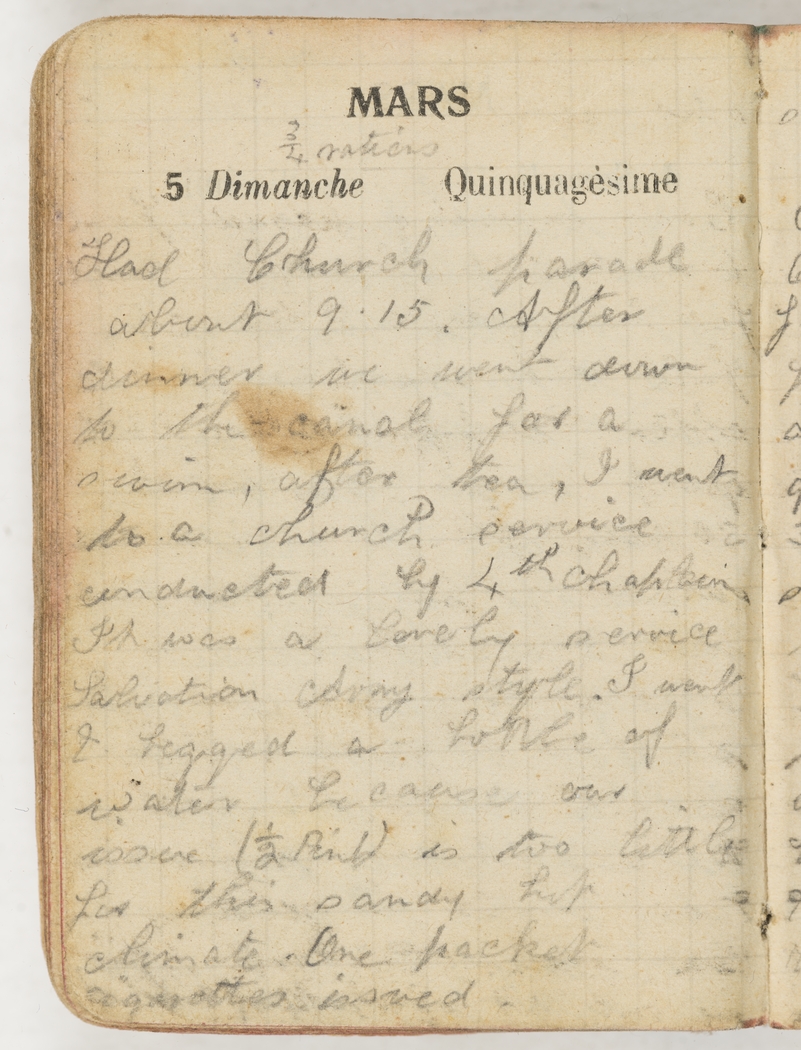 MARS
3/4 rations
5 Dimanche Quinquagésime
Had Church parade
about 9.15. After
dinner we went down
to the canal for a
swim, after tea, I went
to a church service
conducted by 4th chaplain.
It was a lovely service
Salvation Army style. I went
& begged a bottle of
water because our
issue (1/2 Pint) is too little
for this sandy hot
climate. One packet
cigarettes issued.